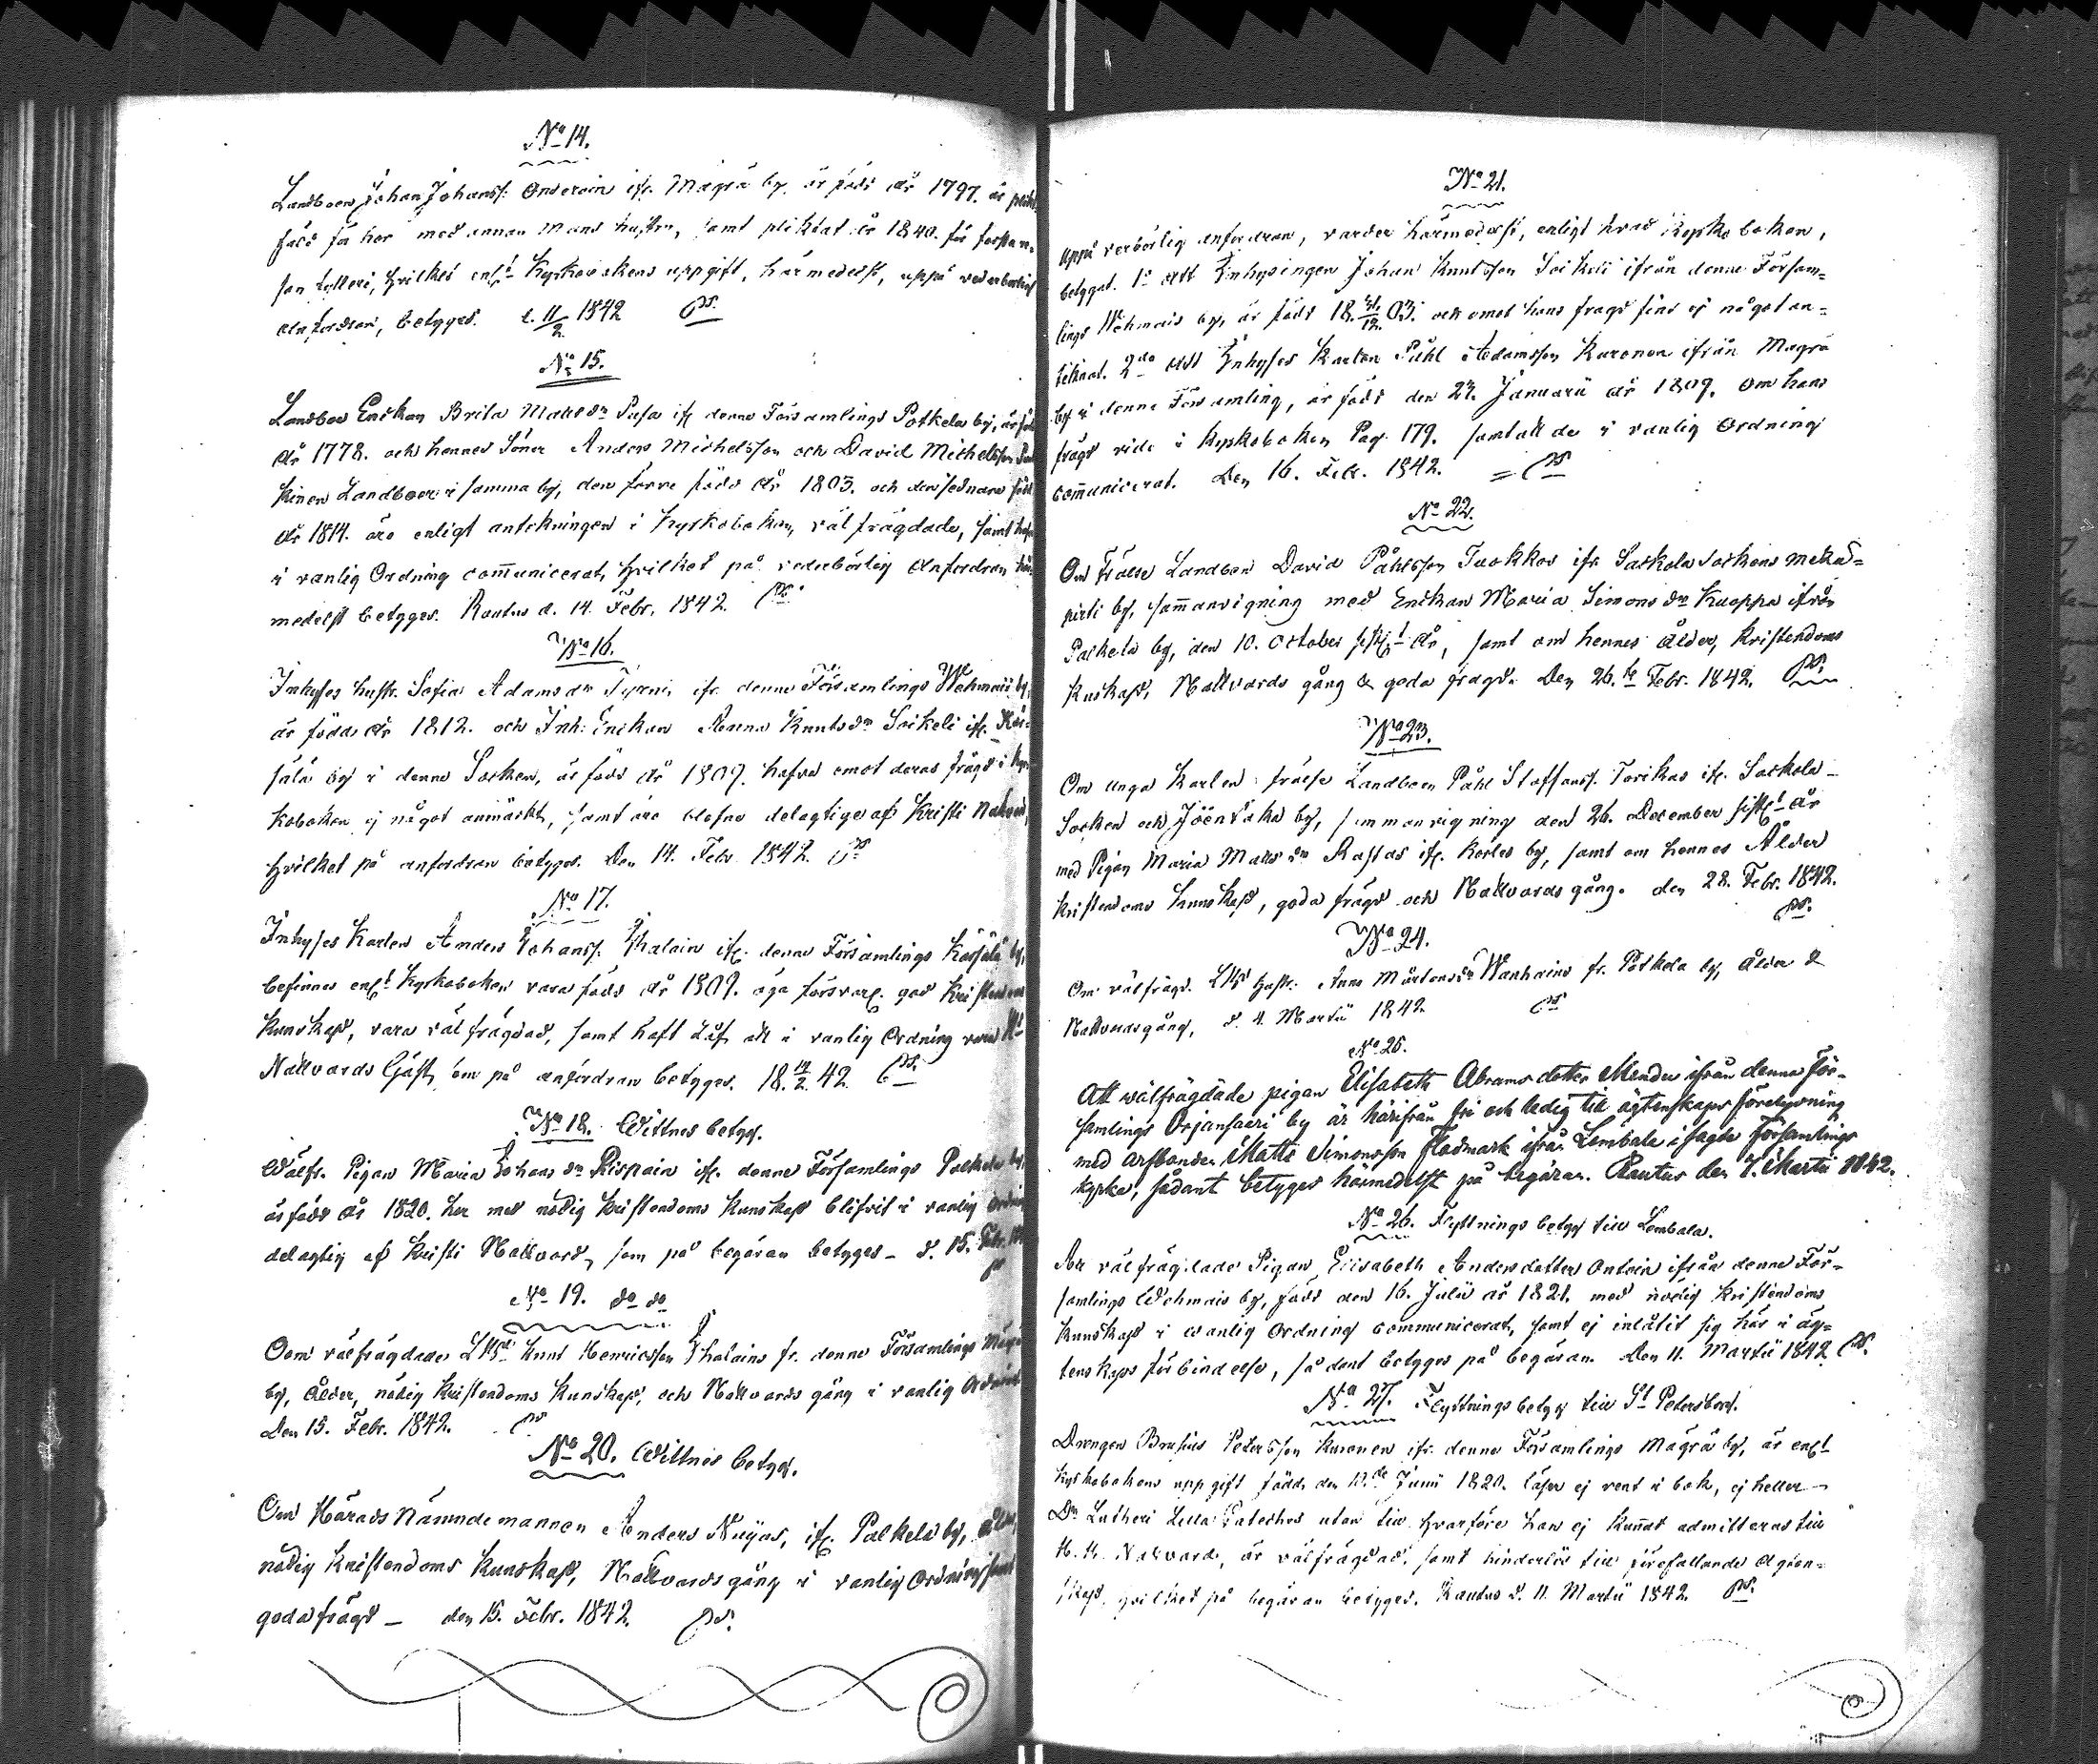 No 14.
Landboen Johan Johanss: Onderain ifr. Mägrä by, är född År 1797. är
fäld för hor med annan mans hustru, samt pliktat År 1840. för
tylleri, hvilket enl:t Kyrkobokens uppgift, härmedelst, uppå vederbörlig
anfordran, betyges. d. 11/2 1842 ps.
No 15.
Landboe Enckan Brita Matsdr Pusa ifr denna Församlings Potkela by, är
År 1778. och hennes Söner Anders Michelsson och David Michelsson
kinen Landboer i samma by, den förre född År 1803. och den sednare född
År 1814. äro enligt antekningen i Kyrkoboken, väl frägdade, samt
i vanlig Ordning communicerat, hvilket på vederbörlig Anfordran här
medelst betyges. Rautus d. 14. Febr. 1842. ps.
No 16.
Inhyses hustr. Sofia Adamsdr Tyrni ifr denna Församlings Wehmais by,
är född År 1812. och Inh: Enckan Anna Knutsdr Soikeli ifr.
sälä by i denna Socken, är född År 1809. hafva emot deras frägd i
koboken ej något anmärkt, samt äro blefne delagtige af Kristi
hvilket på anfordran betyges. Den 14. Febr. 1842. ps
No 17.
Inhyses Karlen Anders Johanss. Ihalain ifr. denna Församlings Kärsälä by,
befinnes enl:t Kyrkoboken vara född År 1809. äga försvarl. god Kristendoms
kunskap, vara väl frägdad, samt haft Låf att i vanlig Ordning vara H:
Nattvards Gäst, som på anfordran betyges. 18. 14/2. 42. ps.
No 18. Wittnes betyg.
Wälfr. Pigan Maria Johansdr Rispain ifr. denna Församlings Palkela by,
är född År 1820. har med nödig kristendoms kunskap blifvit i vanlig
delagtig af Kristi Nattvard, som på begäran betyges – d. 15. Febr.
ps
No 19. do do
Om välfrägdade Knut Henricsson Ihalains fr. denna Församlings Mägrä
by, Ålder, nödig kristendoms kunskap, och Nattvards gång i vanlig Ordning
Den 15. Febr. 1842. ps
No 20. Wittnes betyg.
Om Härads Nämndemannen Anders Nuijas, ifr. Palkela by,
nödig kristendoms kunskap, Nattvards gång i vanlig Ordning samt
goda frägd – den 15. Febr. 1842. ps.
No 21.
uppå verbörlig anfordran, varder härmedelst, enligt hvad Kyrkoboken,
betygat. 1:o att Inhysingen Johan Knutsson Soikeli ifrån denna Försam=
lings Wehmais by, är född 18. 31/12. 03. och emot hans frägd fins ej något an=
teknat. 2do att Inhyses Karlen Påhl Adamsson Kuronen ifrån Mägrä
by i denna Församling, är född den 22. Januarii År 1809. om hans
frägd vide i Kyrkoboken Pag. 179. samt att de i vanlig Ordning
communicerat. Den 16. Febr. 1842. = ps
No 22.
Om Frälse Landboen David Påhlsson Tuokkos ifr Sackola Sockens
by, sammanvigning med Enckan Maria Simonsdr Kuoppa ifrån
Palkela by, den 10. October År, samt om hennes Ålder, kristendoms
kuskap, Nattvards gång & goda frägd. Den 26.te Febr. 1842. ps.
No 23.
Om unga Karlen frälse Landboen Påhl Staffanss. Torikas ifr. Sackola
Socken och by, sammanvigning den 26. December År
med Pigan Maria Matsdr Rastas ifr. Korles by, samt om hennes Ålder
kristendoms kunskap, goda frägd och Nattvards gång. den 28. Febr. 1842.
ps.
No 24.
Om välfrägd. hustr. Anna Mårtensdr Wanhains fr. Potkela by, Ålder &
Nattvardsgång, d. 4. Martii 1842. ps
No 25.
Att wälfrägdade pigan Elisabeth Abrams dotter Mendu ifrån denna För-
samlings Orjansaari by är härifrån fri och ledig till ägtenskaps förelysning
med Arfbonden Matts Simonsson Flodmark ifrån Lembala i sagde församlings
kyrka, sådant betyges härmedelst på begäran. Rautus den 7. Martii 1842.
No 26. Flyttnings betyg till Lembala.
Att välfrägdade Pigan Elisabeth Andersdotter Ontoin ifrån denna För=
samlings Wehmais by, född den 16. Julii år 1821. med nödig kristendoms
kunskap i wanlig Ordning communicerat, samt ej inlåtit sig här i äg=
tenskaps förbindelse, sådant betyges på begäran. Den 11. Martii 1842. ps.
No 27. Flyttningsbetyg till St Petersborg.
Drengen Brusius Petersson Kuronen ifr. denna Församlings Mägrä by, är enl:t
Kyrkobokens uppgift född den 10.de Junii 1820. läser ej rent i bok, ej heller
Dr Lutheri Lilla Cateches utan till hvarföre han ej kunnat admitteras till
H. H. Nattvard, är välfrägdad, samt hinderlös till förefallande ägten=
skap, hvilket på begäran betyges. Rautus d. 11. Martii 1842. ps.